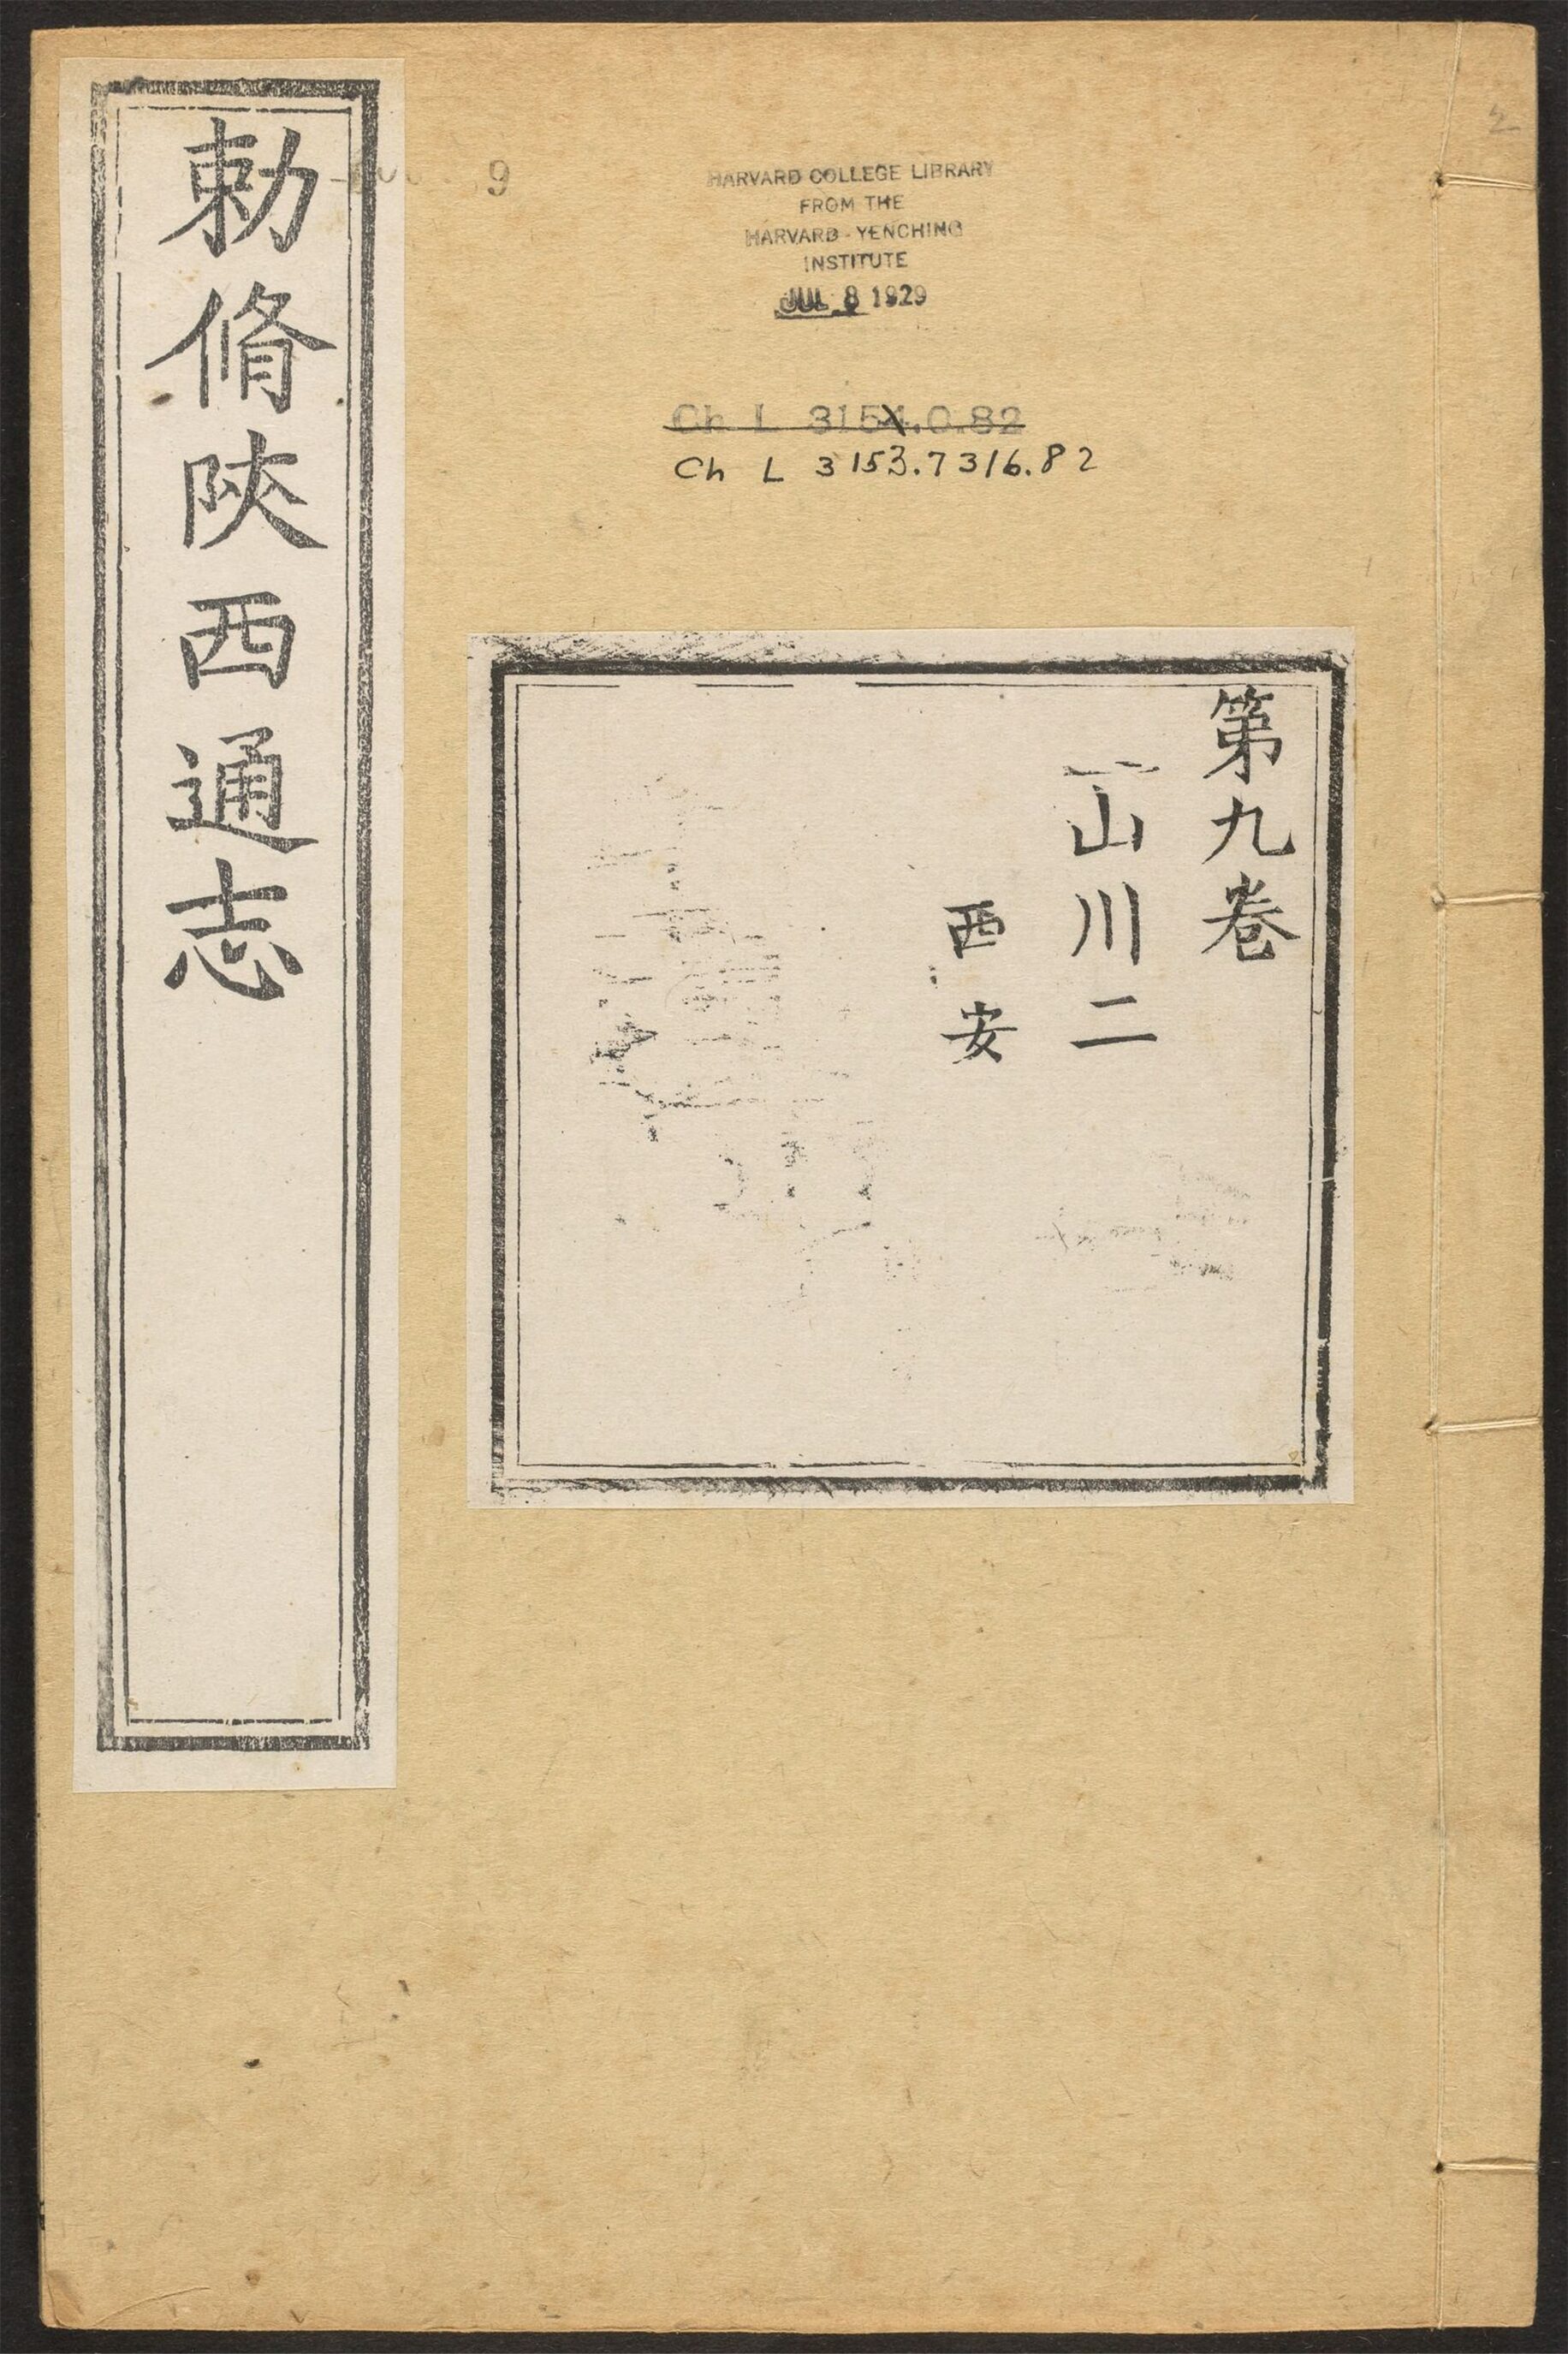 勅脩陜西通志
9
2
HARVARD COLLEGE LIBRARY
FROM THE
HARVARD-YENCHING
INSTITUTE
JUL 8 1929
Ch L 3154.0.82
Ch L 3153.7316.82
第九卷
山川二
西安